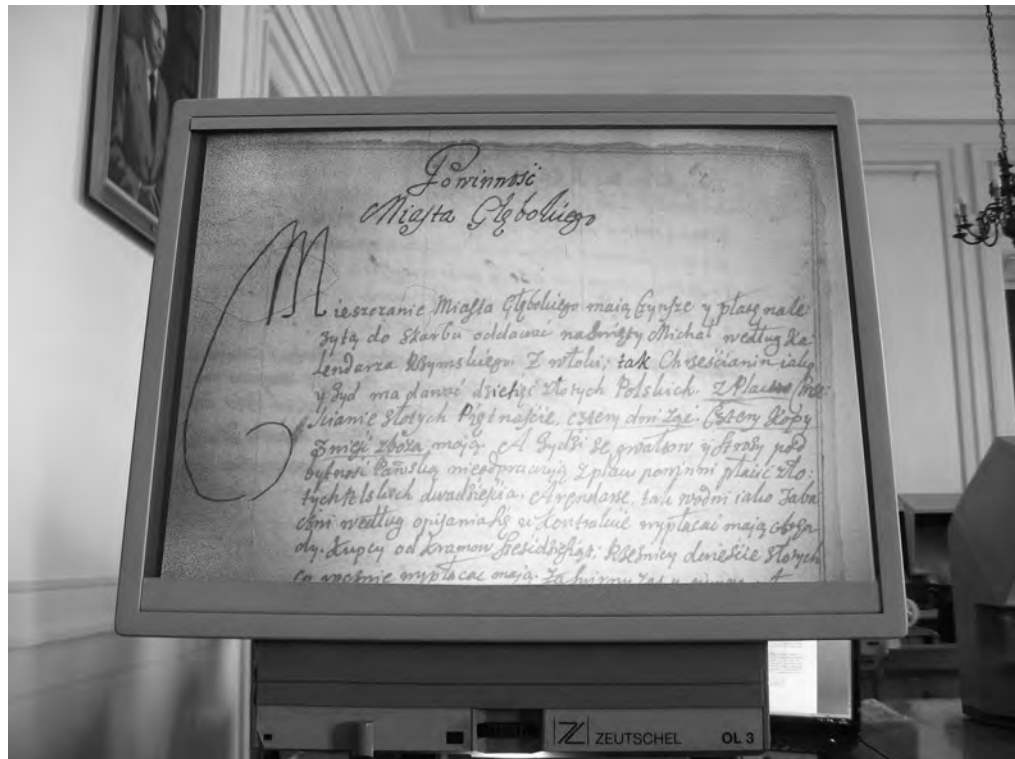 Powinność
Miasta Głębokiego
Mieszczanie Miasta Głębokiego maią Czynsze y płacę nale:
żytą do Skarbu oddawać na Święty Michał według Ka
lendarza Rzymskiego. Z włoki, tak Chrześcianin iako
y Żyd ma dawać dziesięć złotych Polskich. Z Placow Chrze:
ścianie złotych Piętnaście, cztery dni żąć. Cztery Kopy
zboża mają. A Żydzi że gwałtow y Stroży pod
bytność Pańską nieodpracuią z placu powinni płacić zło:
tych Polskich dwadzieścia. Arendarze, tak wodni iako
według opisania się w Kontrakcie wypłacać mają
Kupcy od Kramow dwieście złotych
co rocznie wypłacać mają.
ZEUTSCHEL OL 3